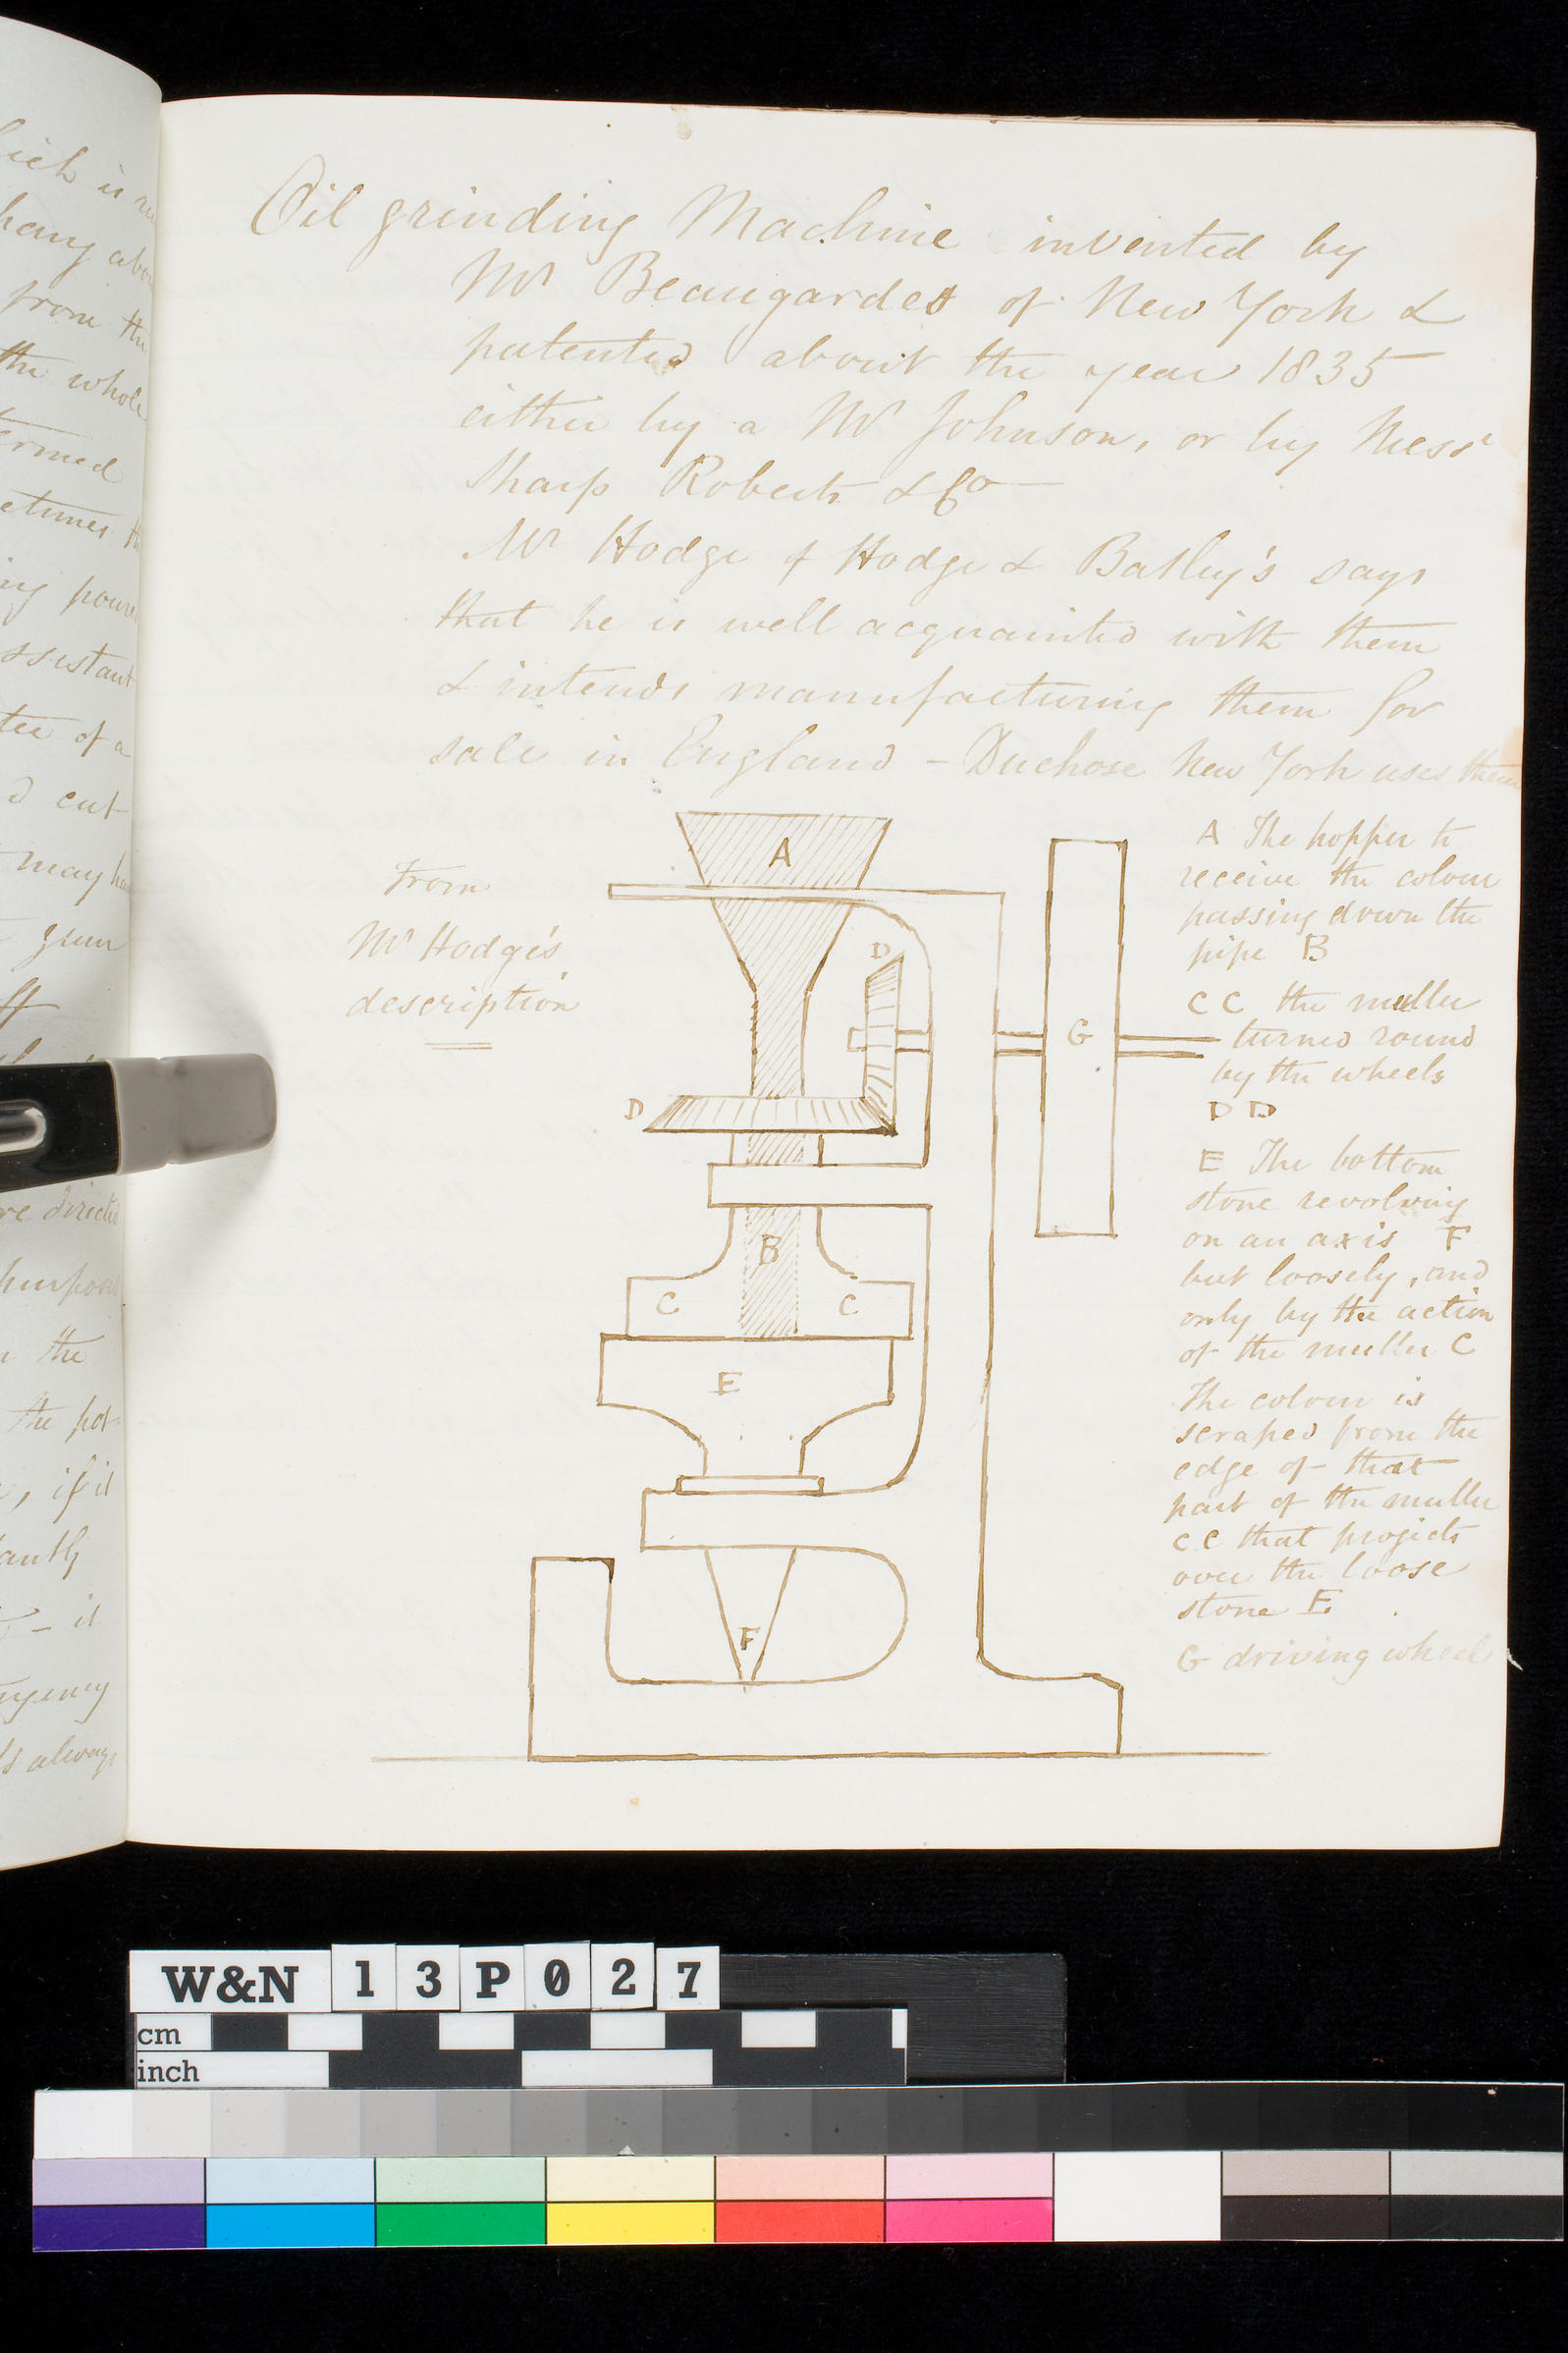 Oil grinding Machine invented by
Mr Beaugardes of New York &
patented about the year 1835
either by a Mr Johnson, or by Messrs
Sharp Roberts & Co
Mr Hodge of Hodge & Batley's says
that he is well acquainted with them
& intends manufacturing them for
sale in England – Duchose New York uses them
From
Mr Hodge's
description
A
D
D
G
B
C C
E
F
A The hopper to
receive the colour
passing down the
pipe B
CC the muller
turned round
by the wheels
D D
E The bottom
stone revolving
on an axis F
but loosely, and
only by the action
of the muller C
The colour is
scraped from the
edge of that
part of the muller
CC that projects
over the loose
stone E.
G driving wheel
which is
from the
the whole
termed
sometimes
assistant
of a
cut
may
gum
directed
purpose
the
the pot
, if it
– it
always
W&N 13P027
cm
inch